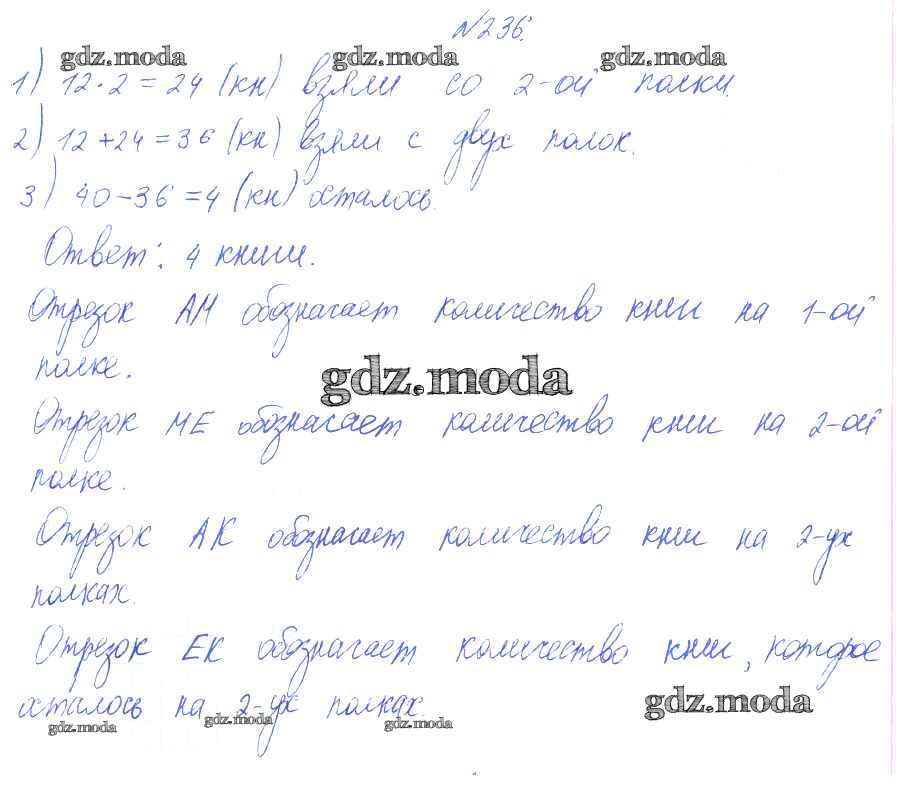 №236.
gdz.moda gdz.moda gdz.moda
1) 12·2=24 (кн) взяли со 2-ой полки.
2) 12+24=36 (кн) взяли с двух полок.
3) 40-36=4 (кн) осталось.
Ответ: 4 книги.
Отрезок АМ обозначает количество книг на 1-ой
полке.
gdz.moda
Отрезок МЕ обозначает количество книг на 2-ой
полке.
Отрезок АК обозначает количество книг на 2-ух
полках.
Отрезок ЕК обозначает количество книг, которое
осталось на 2-ух полках.
gdz.moda gdz.moda gdz.moda gdz.moda